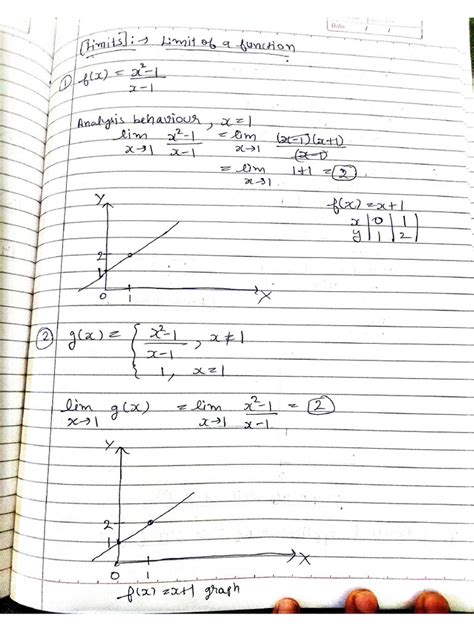 [Limits] :→ Limit of a function
① f(x) = x²-1 / x-1
Analysis behaviour, x=1
lim x→1 x²-1 / x-1 = lim x→1 (x-1)(x+1) / (x-1)
= lim x→1 1+1 = 2
f(x) = x+1
x | 0 | 1
y | 1 | 2
Y
2
1
0 1 X
② g(x) = { x²-1 / x-1 , x≠1
1, x=1
lim x→1 g(x) = lim x→1 x²-1 / x-1 = 2
Y
2
1
0 1 X
f(x) = x+1 graph